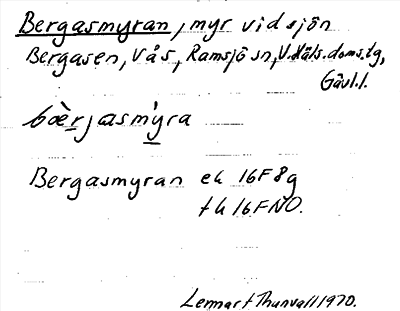 Bergasmyran, myr vid sjön
Bergasen, Vås, Ramsjö sn, V. Häls. doms.tg,
Gävl.l.
bæ̀rjasmýra
Bergasmyran ek 16F8g
tk 16F NO.
Lennart Thunvall 1970.